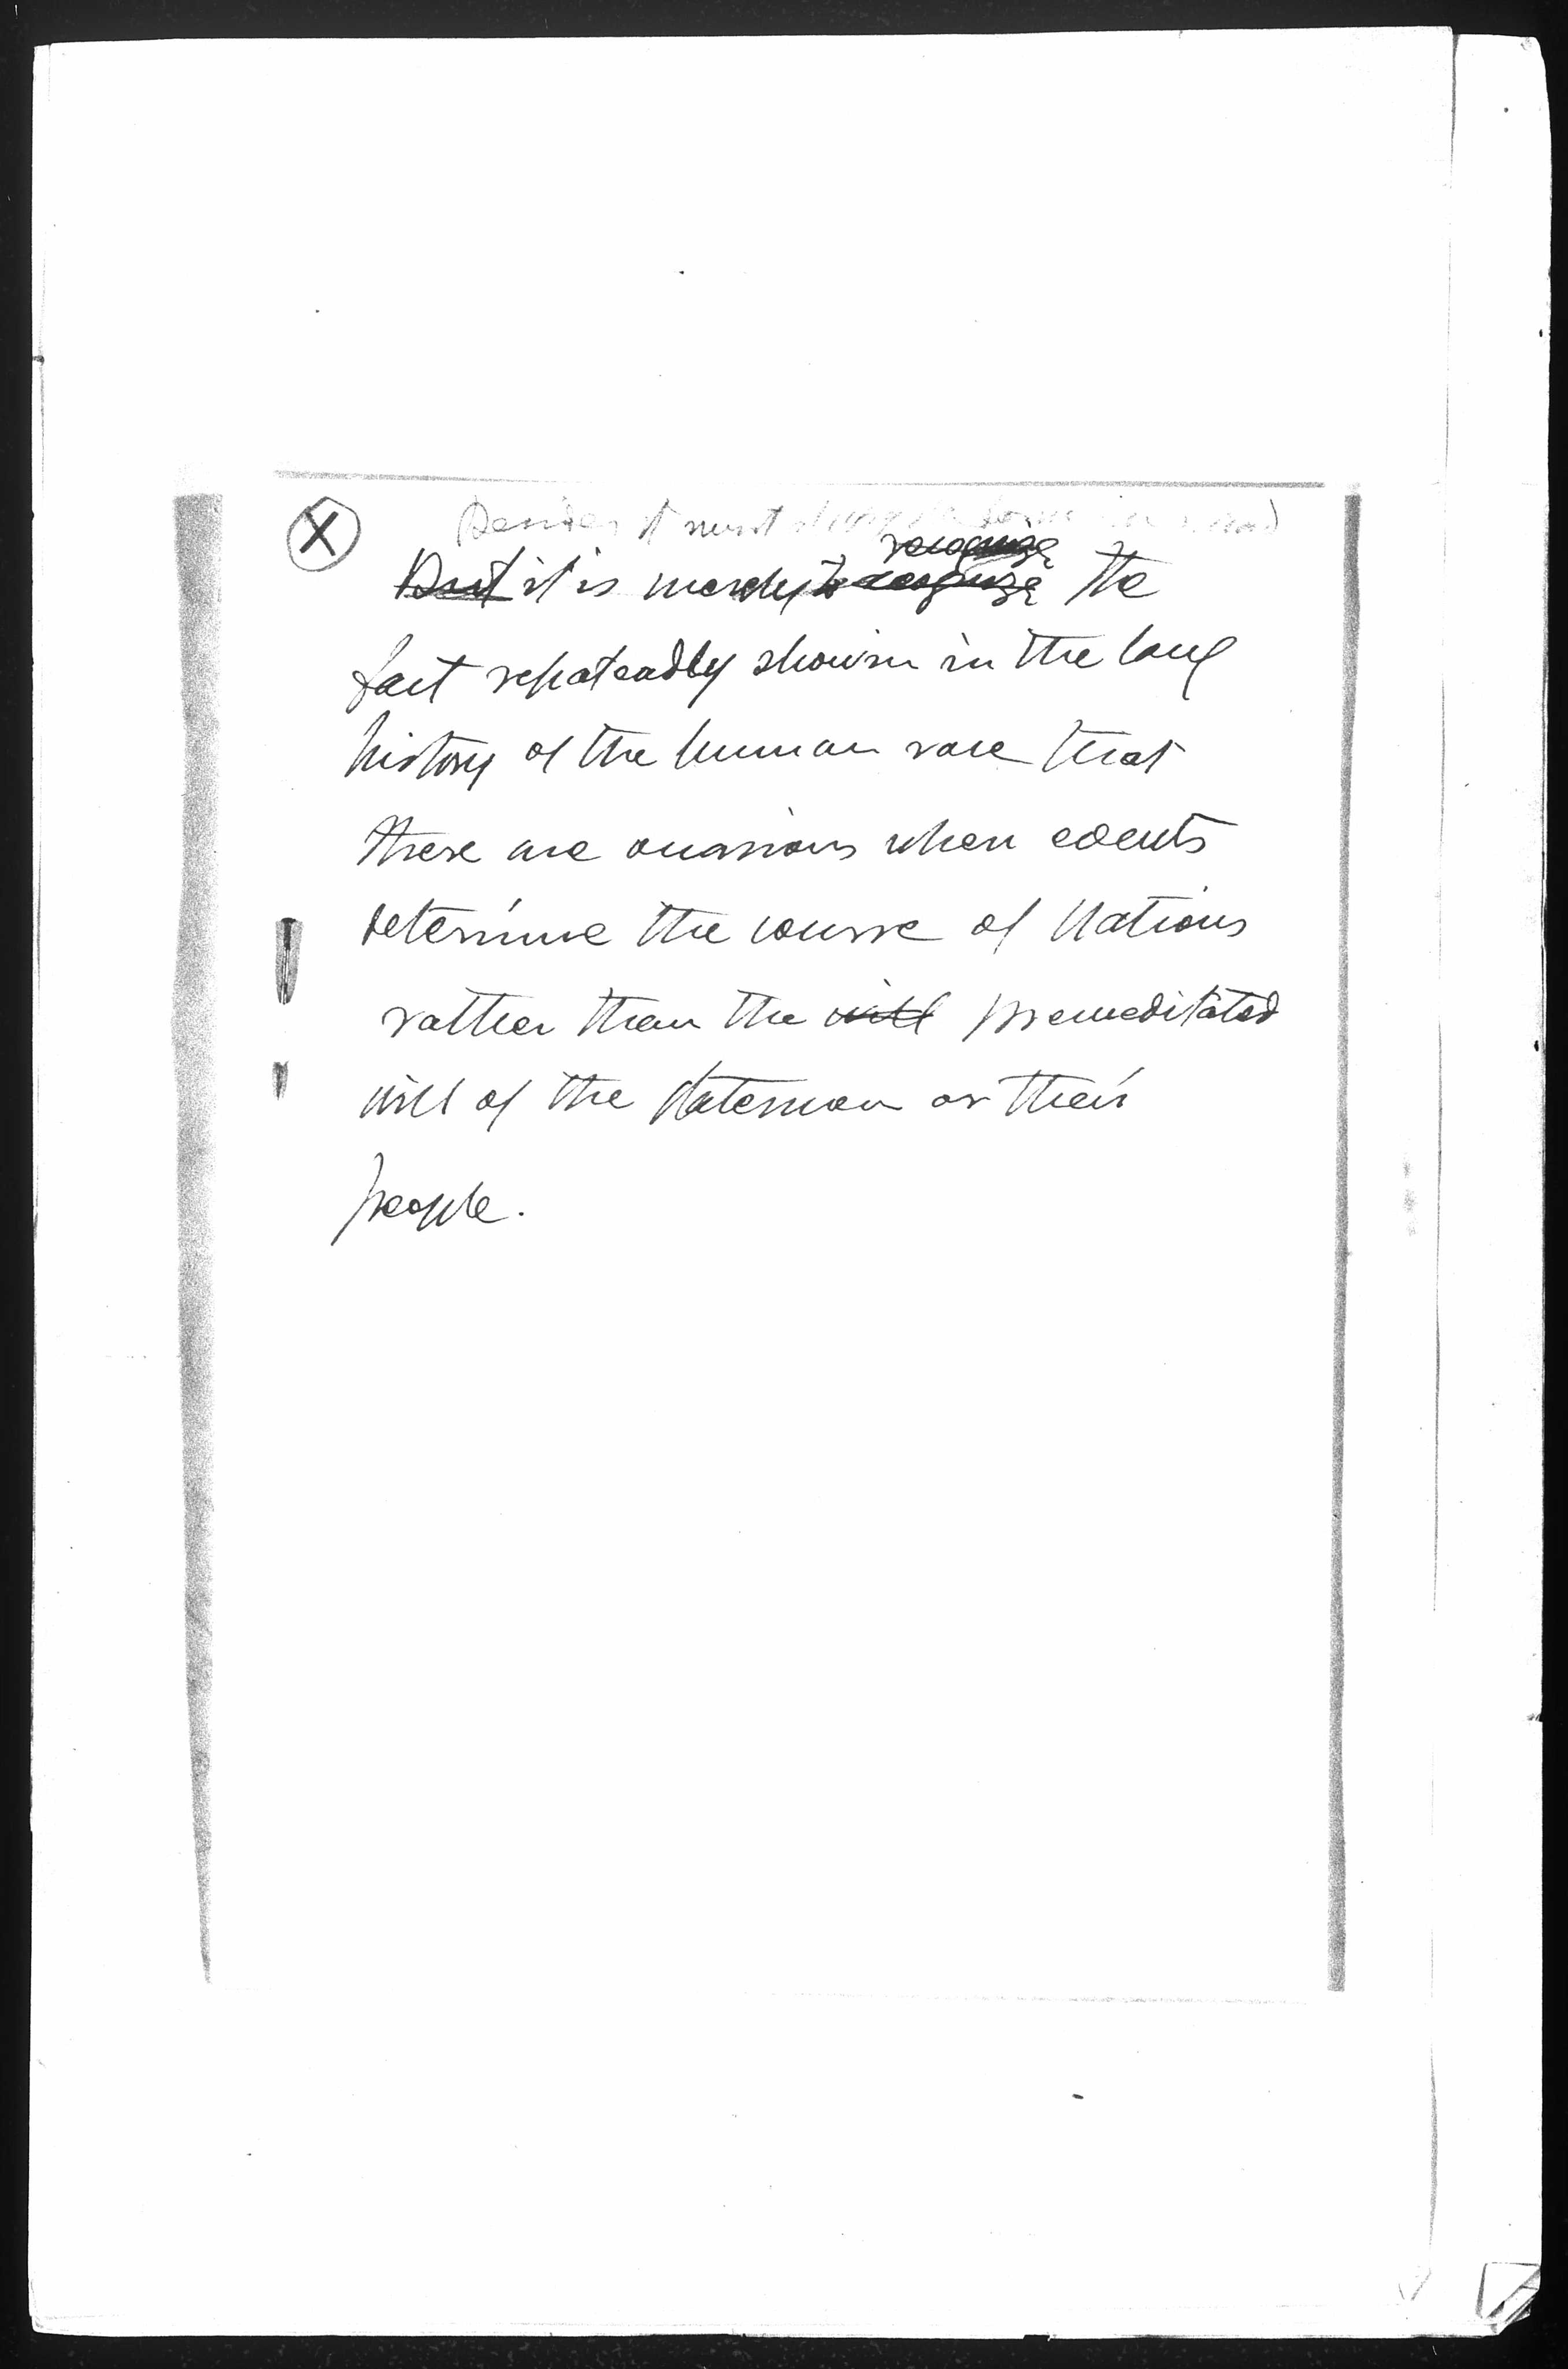 X
Besides it must
recognize
But it is merely to recognize the
fact repeateadly shown in the long
history of the human race that
there are occassions when events
determine the course of Nations
rather than the will premeditated
will of the statesman or their
people.